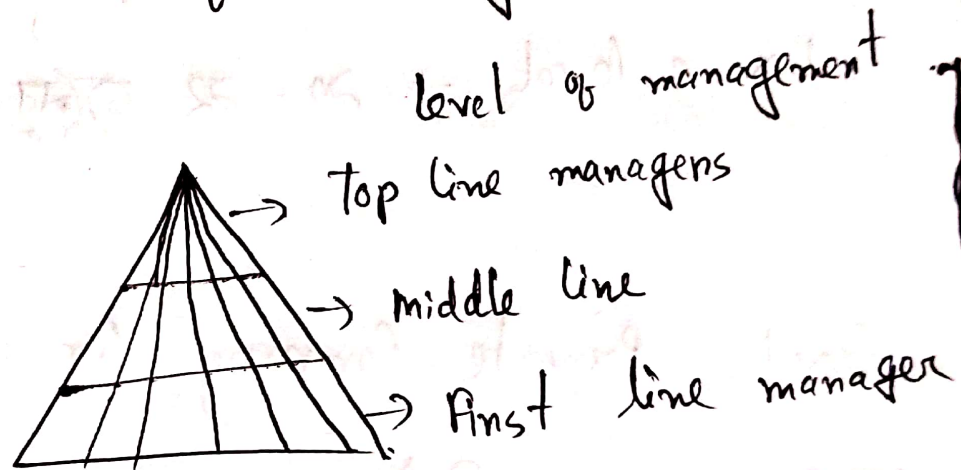 level of management
top line managers
middle line
First line manager